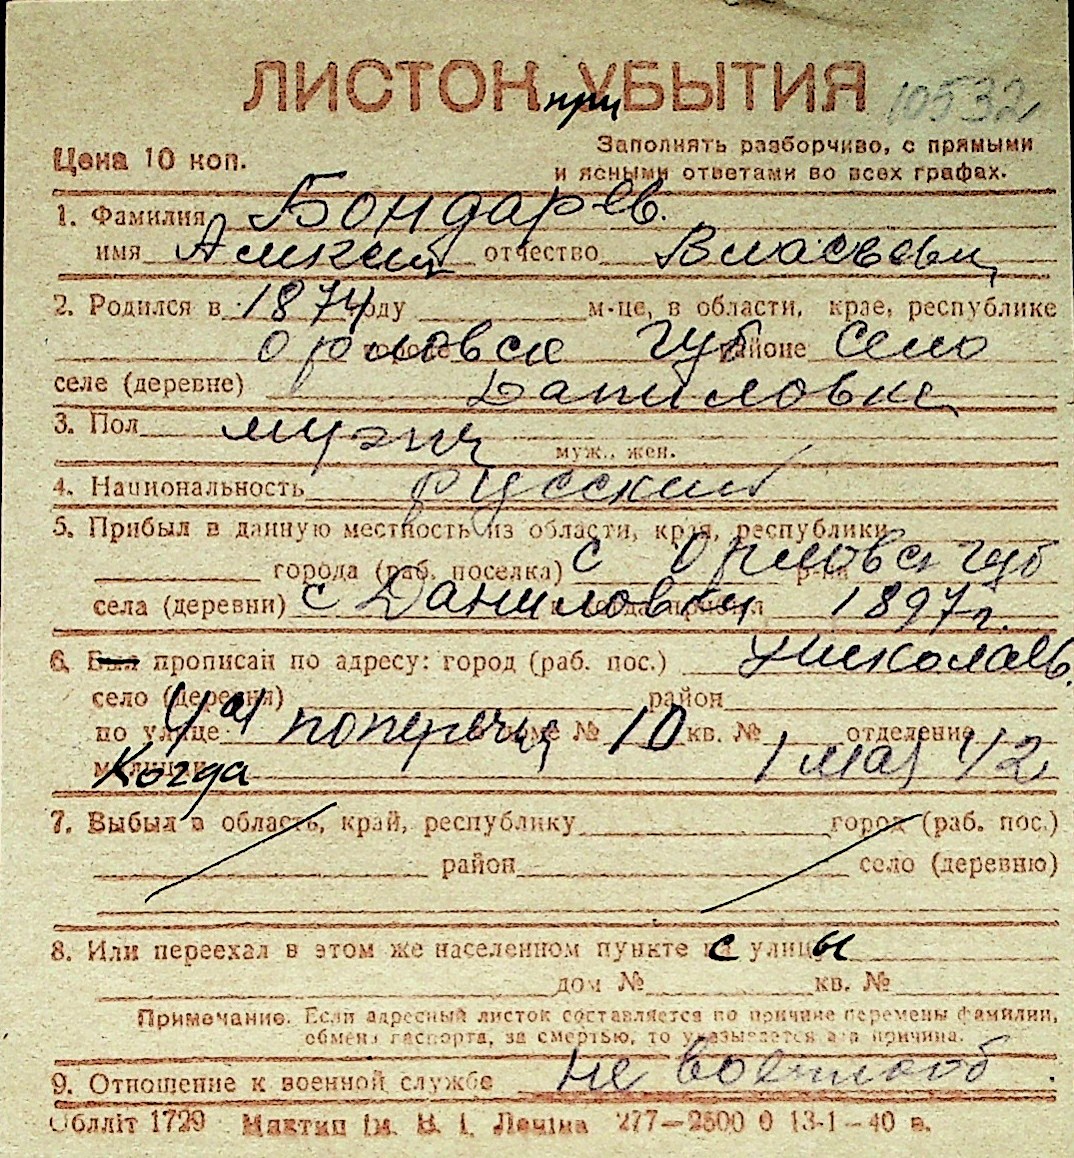 ЛИСТОК при УБЫТИЯ 10532
Цена 10 коп.
Заполнять разборчиво, с прямыми
и ясными ответами во всех графах.
1. Фамилия Бондарев.
имя Алексей отчество Власьевич
2. Родился в 1874 году м-це, в области, крае, республике
Орловск губ районе село
селе (деревне) Даниловка
3. Пол мужч
муж., жен.
4. Национальность русский
5. Прибыл в данную местность из области, края, республики
города (раб. поселка) с Орловск губ р-на
села (деревни) с Даниловки 1897 г.
6. Был прописан по адресу: город (раб. пос.) Николаев.
село (деревня) район
по улице 4ая поперечн доме № 10 кв. № отделение
милиции Когда 1 мая 42
7. Выбыл в область, край, республику город (раб. пос.)
район село (деревню)
8. Или переехал в этом же населенном пункте с улицы
дом № кв. №
Примечание. Если адресный листок составляется по причине перемены фамилии,
обмена паспорта, за смертью, то указывается эта причина.
9. Отношение к военной службе не военнооб.
Облліт 1729 Миктип ім. В. І. Леніна 277—2500 0 13-1-40 в.